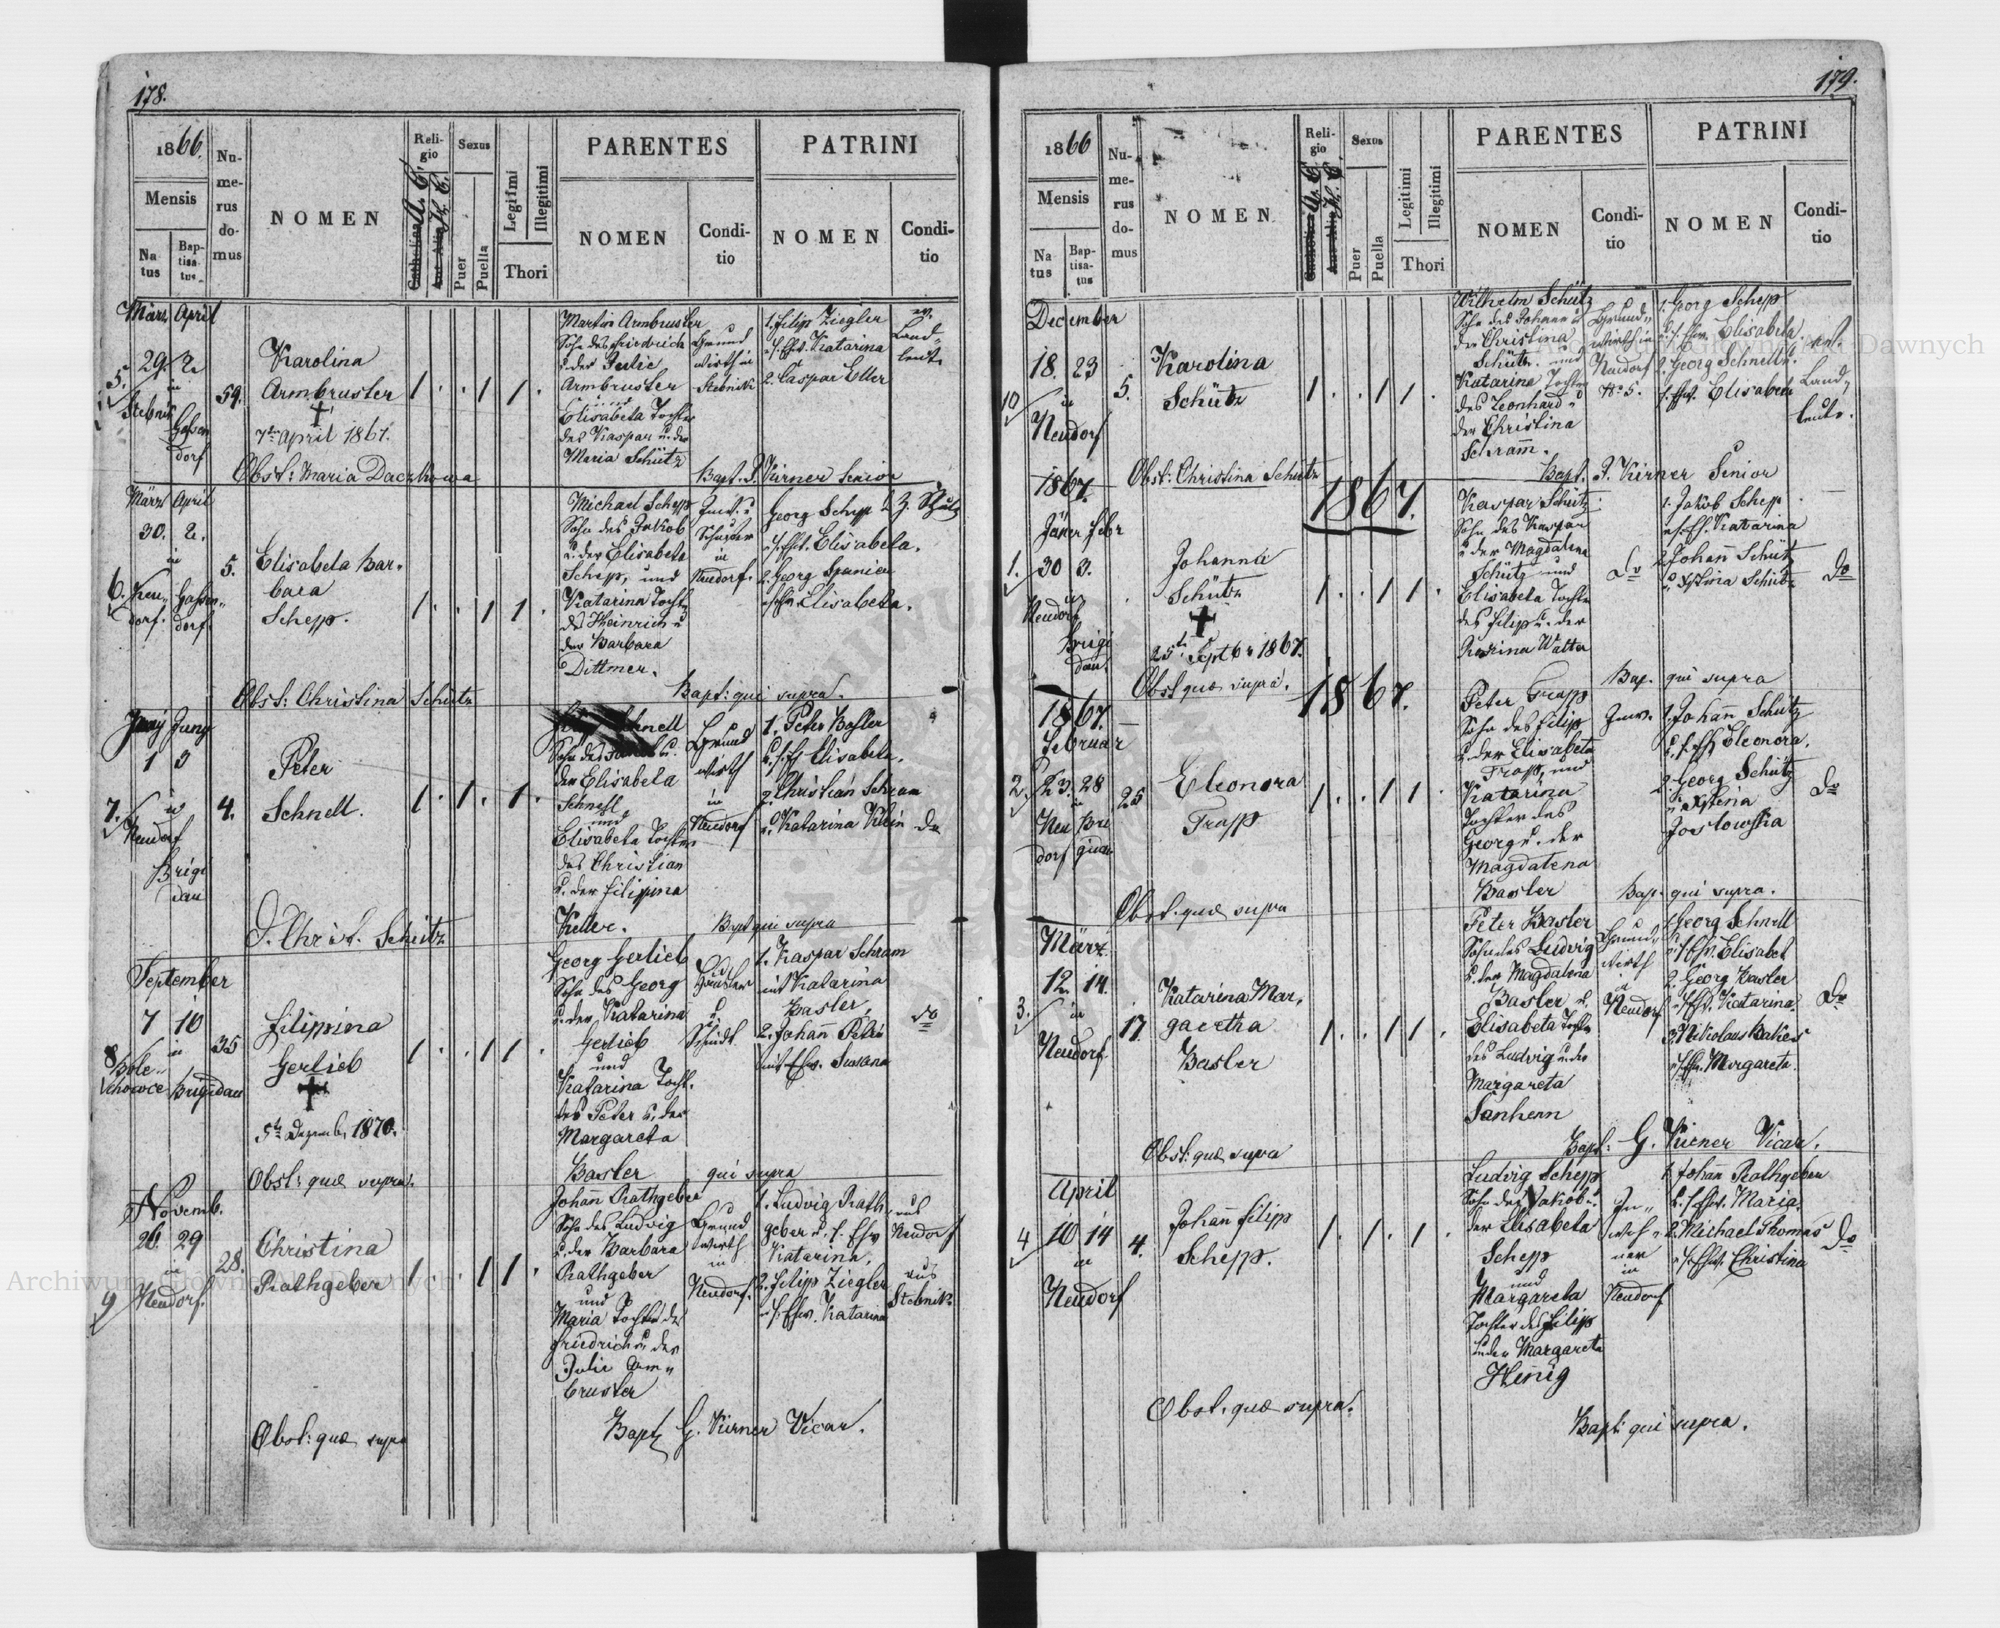 178.
1866.
Mensis
Natus
Baptisatus
Numerus domus
NOMEN
Religio
Catholica A. C.
Aut Alia H. C.
Sexus
Puer
Puella
Legitimi
Illegitimi
Thori
PARENTES
NOMEN
Conditio
PATRINI
NOMEN
Conditio
März April
29. 2.
5. in
Stebnik Gassendorf
59.
Karolina
Armbruster
†
7ten April 1867.
1 . . 1 1 .
Martin Armbruster
Sohn des Friedrich
u. der Julie
Armbruster
und
Elisabeta Tochter
des Kaspar u. der
Maria Schütz
Grund
wirth in
Stebnik
1. Filip Ziegler
u. s. Ehw. Katarina
2. Caspar Etter
ev.
Land-
leute
Obst: Maria Daczkowa
Bapt. J. Kirner Senior
März April
30. 2.
in
6. Neu-
dorf. Gassen-
dorf.
5.
Elisabeta Bar-
bara
Schepp.
1 . . 1 1 .
Michael Schepp
Sohn des Jakob
u. der Elisabeta
Schepp, und
Katarina Tocht
des Heinrich u
der Barbara
Dittmer.
Inw. u
Schuster
in
Neudorf.
Georg Schepp
u. s. Ehw. Elisabeta.
2. Georg Spanier
u s Ehw Elisabeta.
Obst: Christina Schütz
Bapt: qui supra.
Juny Juny
1 3
7. in
Neudorf
Brigi
dau
4.
Peter
Schnell.
1 . 1 . 1 .
Schnell
Sohn des u.
der Elisabeta
Schnell
und
Elisabeta Tochter
des Christian
u. der Filippina
Keller.
Grund
wirth
in
Neudorf
1. Peter Basler
u. s. Eh Elisabeta.
2. Christian Schram
u. Katarina Klein
do
O. Christ. Schütz
Bapt qui supra
September
7 10
8 in
Bole-
chowce Brigidau
35
Filippina
Gerlieb
†
5te Dezemb. 1870.
1 . . 1 1 .
Georg Gerlieb
Sohn des Georg
u. der Katarina
Gerlieb
und
Katarina Tocht.
des Peter u. der
Margareta
Basler
u.
Schmidt
1. Kaspar Schram
mit Katarina
Basler,
2. Johan̄ Peter
mit Ehw. Susana
do
Obst: quæ supra.
qui supra
Novemb.
26. 29
in
9 Neudorf.
28.
Christina
Rathgeber
1 . . 1 1 .
Johan̄ Rathgeber
Sohn des Ludwig
u. der Barbara
Rathgeber
und
Maria Tochter des
Friedrich u. der
Julie Arm-
bruster
Grund
wirth
in
Neudorf.
1. Ludvig Rath-
geber u. s. Ehw
Katarina,
2. Filip Ziegler
u. s. Ehw. Katarina
aus
Neudorf
aus
Stebnik
Obst: quæ supra
Bapt G. Kirner Vicar.
179.
1866
Mensis
Natus
Baptisatus
Numerus domus
NOMEN
Religio
Catholica A. C.
Aut Alia H. C.
Sexus
Puer
Puella
Legitimi
Illegitimi
Thori
PARENTES
NOMEN
Conditio
PATRINI
NOMEN
Conditio
December
18. 23
10 in
Neudorf
5.
Karolina
Schütz
1 . . 1 1 .
Wilhelm Schütz
Sohn des Johann u
der Christina
Schütz und
Katarina Tochter
des Leonhard u
der Christina
Schram̄.
Grund-
wirth in
Neudorf
No 5.
1. Georg Schepp
u. s. Ehw. Elisabeta.
2. Georg Schnell
s. Ehw. Elisabeta
ev.
Land-
leute.
Obst: Christina Schütz
Bapt. J. Kirner Senior
1867.
1867.
Jäner Febr
1. 30 3.
in
Neudorf
Brigi
dau.
Johanna
Schütz
†
25te Septbr 1867.
1 . . 1 1 .
Kaspar Schütz
Sohn des Kaspar
u der Magdalena
Schütz und
Elisabeta Tochter
des Filip u. der
Walter
Do
1. Jakob Schepp
u. s. Eh. Katarina
2. Johan̄ Schütz
u. Schütz
Do
Obst quæ supra.
Bap. qui supra
1867.
1867.
Februar
2. 23. 28
in
Neu Bri
dorf gidau
25
Eleonora
Trapp
1 . . 1 1 .
Peter Trapp
Sohn des Filip
u. der Elisabeta
Trapp, und
Katarina
Tochter des
Georg u. der
Magdalena
Basler
Inw.
1. Johan̄ Schütz
u. s. Eh Eleonora.
2. Georg Schütz
u.
Do
Obst. quæ supra
Bap. qui supra.
März
12. 14.
3. in
Neudorf
17.
Katarina Mar-
garetha
Basler
1 . . 1 1 .
Peter Basler
Sohn des Ludvig
u. der Magdalena
Basler u.
Elisabeta Tochter
des Ludvig u. der
Margareta
Sanhenn
Grund-
wirth
in
Neudorf
1. Georg Schnell
u. s Ehw. Elisabet
2. Georg Basler
u. s Ehw. Katarina.
3. Nikolaus
u. s. Ehw. Margareta.
Do
Obst: quæ supra
Bapt: G. Kirner Vicar.
April
4 10 14
in
Neudorf
4.
Johan̄ Filip
Schepp.
1 . 1 . 1 .
Ludvig Schepp
Sohn des Jakob u.
der Elisabeta
Schepp
und
Margareta
Tochter des Filip
u. der Margareta
Henig
In-
woh-
ner
in
Neudorf
1. Johan Rathgeber
u. s. Ehw. Maria.
2. Michael Thomas
u. s. Ehw. Christina
Do
Obst. quæ supra.
Bapt: qui supra.
Archiwum Główne Akt Dawnych
Archiwum Główne Akt Dawnych